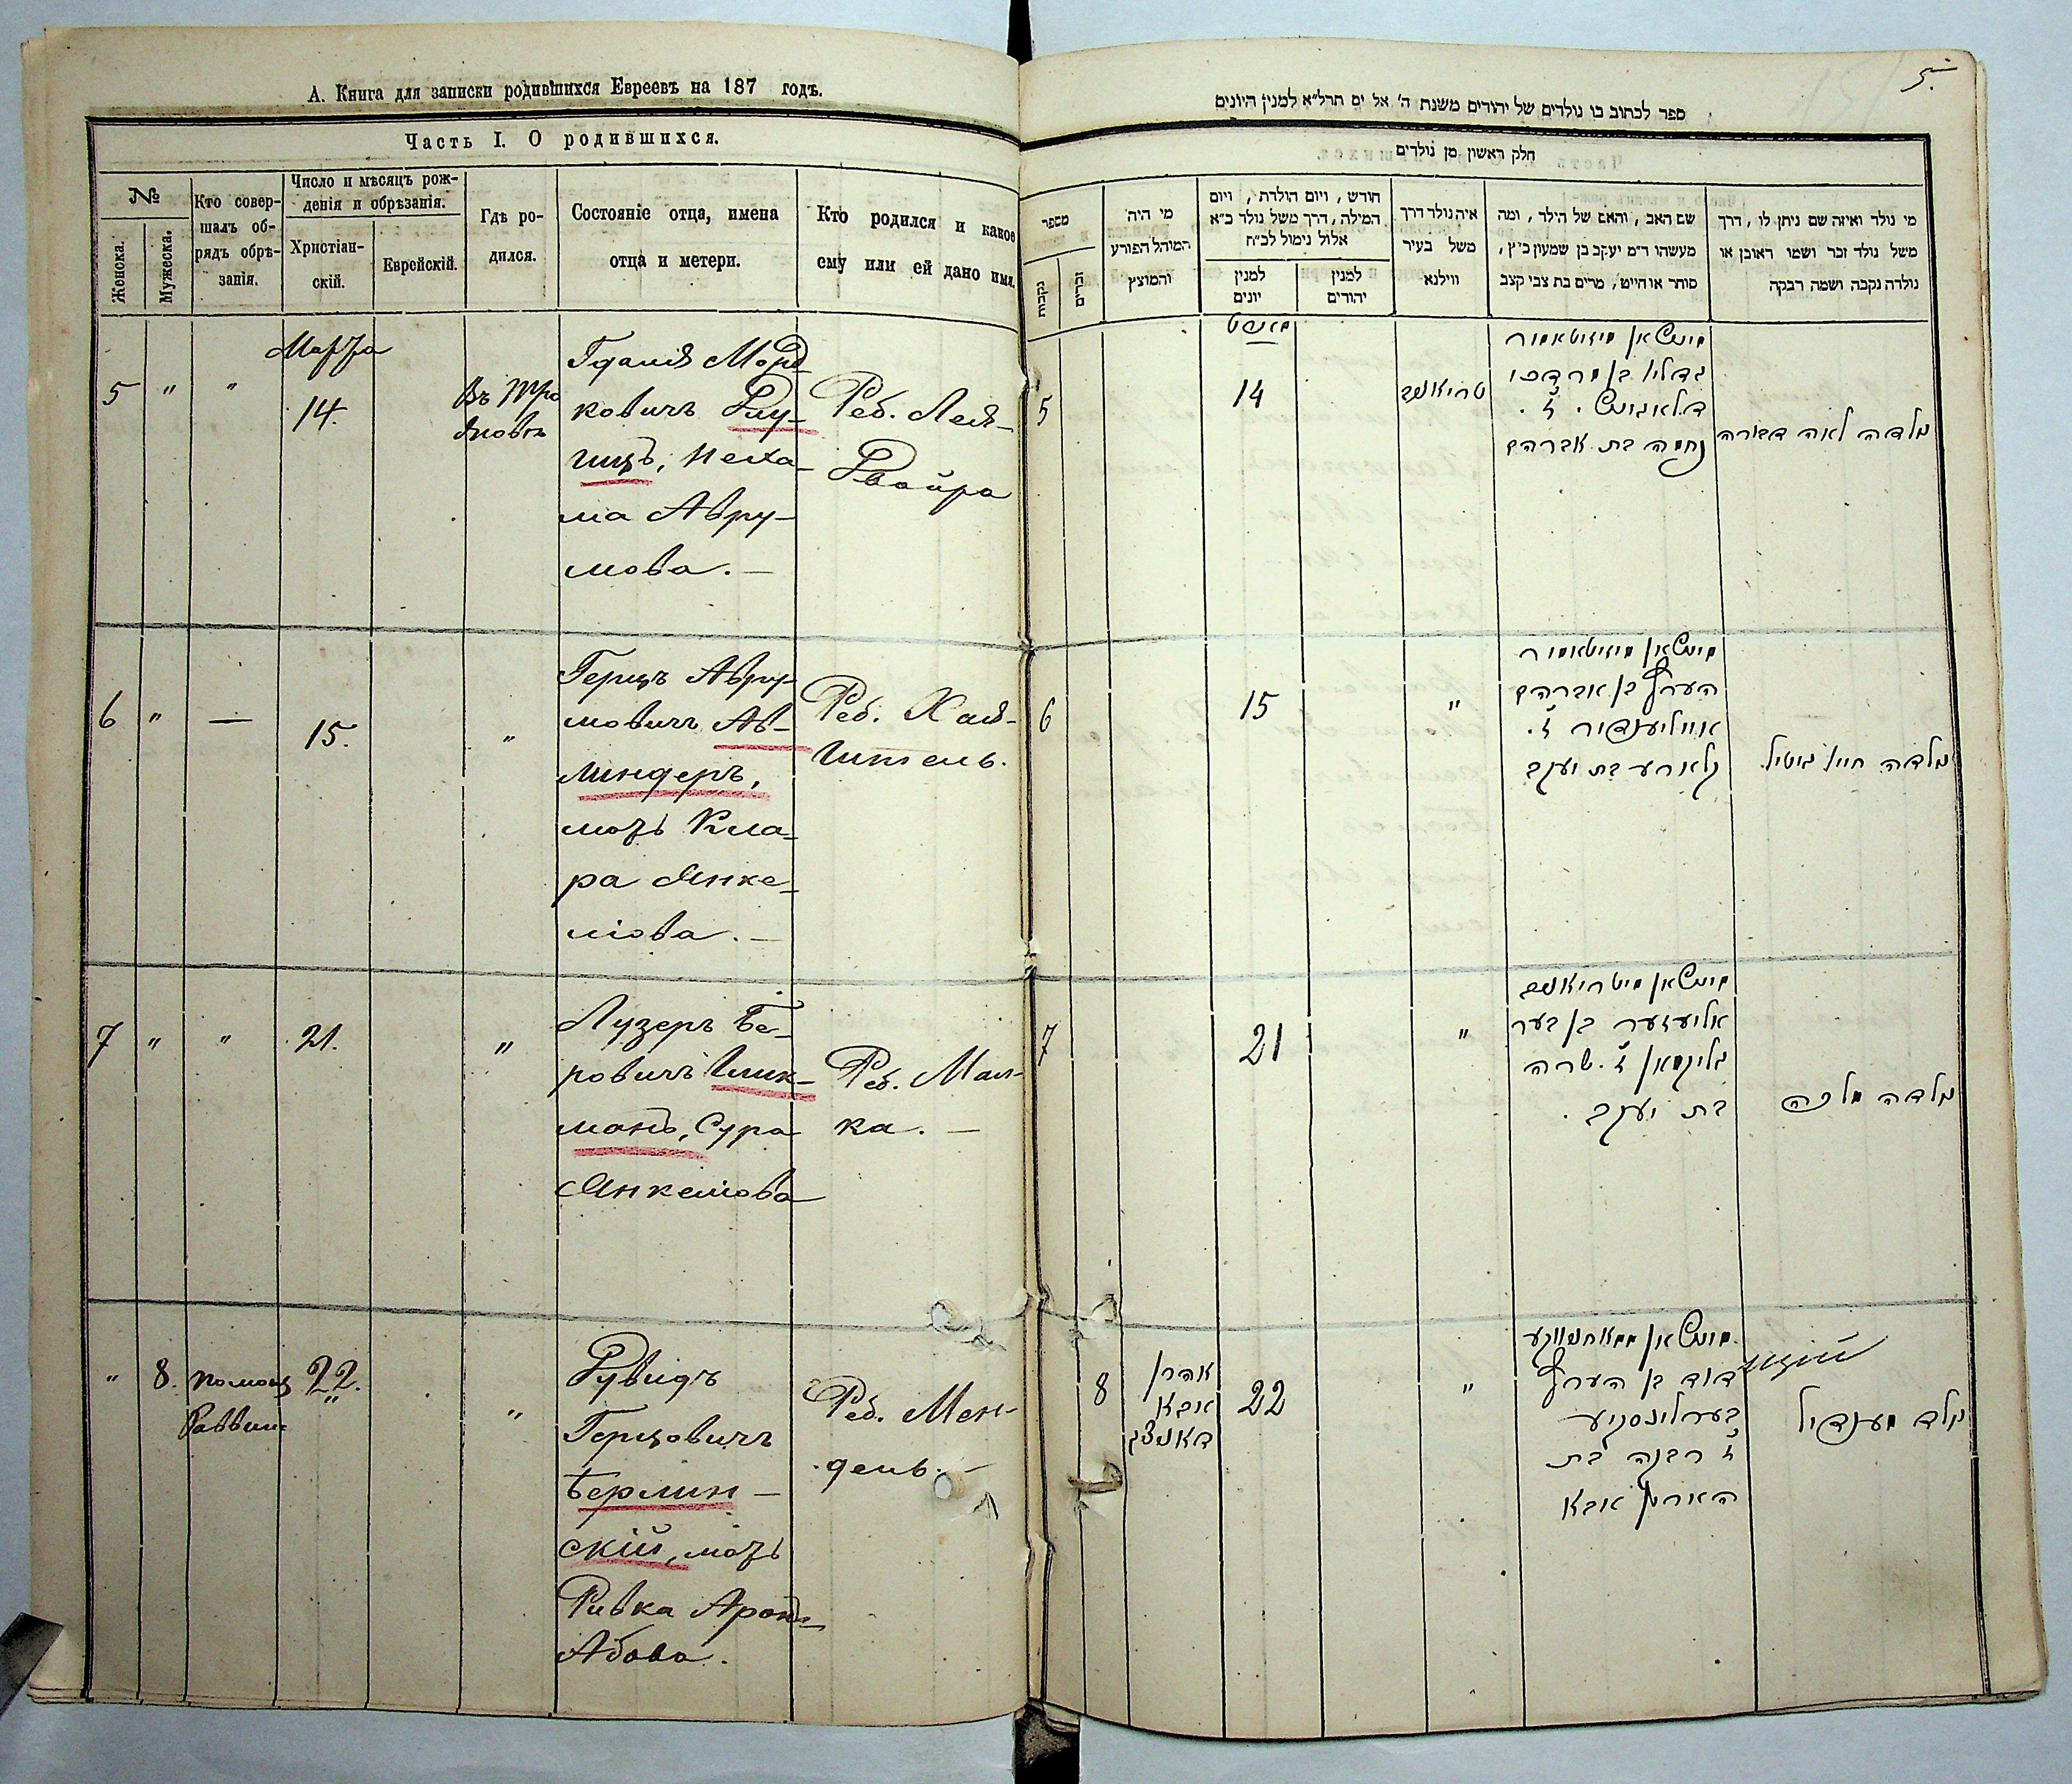 А. Книга для записки родившихся Евреевъ на 187 годъ.
Часть I. О родившихся.
№
Женска.
Мужеска.
Кто совер-
шалъ об-
рядъ обрѣ-
занія.
Число и мѣсяцъ рож-
денія и обрѣзанія.
Христіан-
скій.
Еврейскій.
Гдѣ ро-
дился.
Состояніе отца, имена
отца и метери.
Кто родился и какое
ему или ей дано имя.
5 " "
Марта
14.
Въ Тро
яновѣ
ГдаліяМорд
ковичъ
гицъ, Неха-
ма Авру-
мова.—
Реб. Лея-
Двойра
6 " —
15.
"
Герцъ Авру-
мовичъ Ав-
линдеръ,
мать Кла-
ра Янке-
лiова.—
Реб. Хая-
Гитель.
7 " "
21.
"
Лузеръ Бе-
ровичъ Глик-
манъ, Сура
Янкелiова
Реб. Мал-
ка.—
" 8.
помощ
Раввин
22.
"
Дувидъ
Герцовичъ
Берлин-
скій, мать
Ривка Аронъ-
Абова.
Реб. Мен-
дель.—
5.
ספר לכתוב בו נולדים של יהודים משנת ה' אל ים תרל"א למנין היונים
חלק ראשון מן נולדים
מספר
נקבות
זכרים
מי היה
המוהל הפורע
והמוצץ
חודש, ויום הולדת, ויום
המילה, דרך משל נולד כ"א
אלול נימול לכ"ח
למנין
יונים
למנין
יהודים
איה נולד דרך
משל בעיר
ווילנא
שם האב, והאם של הילד, ומה
מעשהו ר"מ יעקב בן שמעון כ"ץ,
סוחר או חייט, מרים בת צבי קצב
מי נולד ואיזה שם ניתן לו, דרך
משל נולד זכר ושמו ראובן או
נולדה נקבה ושמה רבקה
5
מארט
14
טריאנוב
מיעשצאן מזיטאמיר
גדליו בן מרדכו
נחמה בת אברהם
נולדה לאה דבורה
6
15
"
מיעשצאן מזיטאמיר
הערץ בן אברהם
אווילענדיר ז.
קלארע בת יעקב
נולדה חיי' גיטיל.
7
21
"
מיעשצאן מטריאנוב
אליעזער בן בער
גליקמאן ז. שרה
בת יעקב.
נולדה מלכה
8
אהרן
אבא
דאנציג
22
"
דוד בן הערץ
בערלינסקיע
ז רבקה בת
אהרן אבא
נולד מענדיל